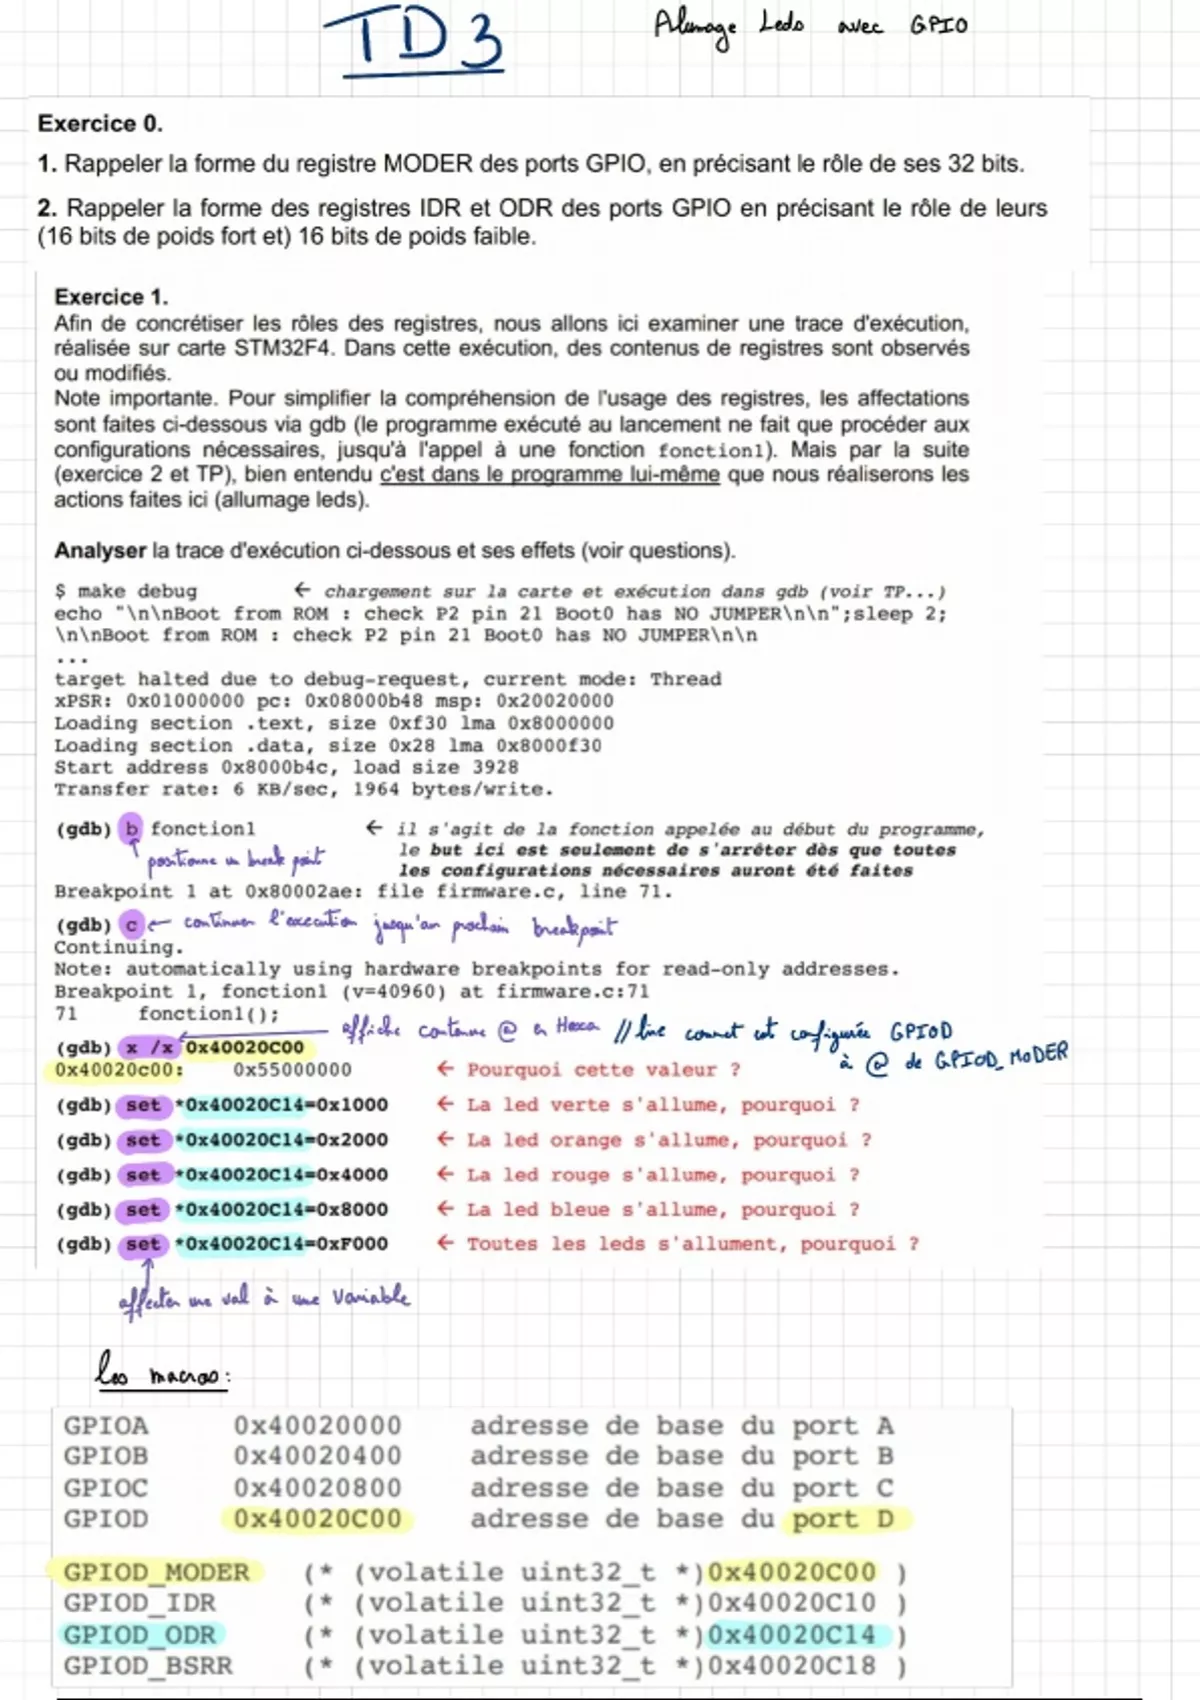 TD3
Alumage Leds avec GPIO
Exercice 0.
1. Rappeler la forme du registre MODER des ports GPIO, en précisant le rôle de ses 32 bits.
2. Rappeler la forme des registres IDR et ODR des ports GPIO en précisant le rôle de leurs
(16 bits de poids fort et) 16 bits de poids faible.
Exercice 1.
Afin de concrétiser les rôles des registres, nous allons ici examiner une trace d'exécution,
réalisée sur carte STM32F4. Dans cette exécution, des contenus de registres sont observés
ou modifiés.
Note importante. Pour simplifier la compréhension de l'usage des registres, les affectations
sont faites ci-dessous via gdb (le programme exécuté au lancement ne fait que procéder aux
configurations nécessaires, jusqu'à l'appel à une fonction fonction1). Mais par la suite
(exercice 2 et TP), bien entendu c'est dans le programme lui-même que nous réaliserons les
actions faites ici (allumage leds).
Analyser la trace d'exécution ci-dessous et ses effets (voir questions).
$ make debug ← chargement sur la carte et exécution dans gdb (voir TP...)
echo "\n\nBoot from ROM : check P2 pin 21 Boot0 has NO JUMPER\n\n";sleep 2;
\n\nBoot from ROM : check P2 pin 21 Boot0 has NO JUMPER\n\n
...
target halted due to debug-request, current mode: Thread
xPSR: 0x01000000 pc: 0x08000b48 msp: 0x20020000
Loading section .text, size 0xf30 lma 0x8000000
Loading section .data, size 0x28 lma 0x8000f30
Start address 0x8000b4c, load size 3928
Transfer rate: 6 KB/sec, 1964 bytes/write.
(gdb) b fonction1 ← il s'agit de la fonction appelée au début du programme,
le but ici est seulement de s'arrêter dès que toutes
positionne un break point
les configurations nécessaires auront été faites
Breakpoint 1 at 0x80002ae: file firmware.c, line 71.
(gdb) c ← continuer l'execution jusqu'au prochain breakpoint
Continuing.
Note: automatically using hardware breakpoints for read-only addresses.
Breakpoint 1, fonction1 (v=40960) at firmware.c:71
71 fonction1();
affiche contenue @ en Hexa // lire comment est configurée GPIOD
à @ de GPIOD_MODER
(gdb) x /x 0x40020C00
0x40020c00: 0x55000000 ← Pourquoi cette valeur ?
(gdb) set *0x40020C14=0x1000 ← La led verte s'allume, pourquoi ?
(gdb) set *0x40020C14=0x2000 ← La led orange s'allume, pourquoi ?
(gdb) set *0x40020C14=0x4000 ← La led rouge s'allume, pourquoi ?
(gdb) set *0x40020C14=0x8000 ← La led bleue s'allume, pourquoi ?
(gdb) set *0x40020C14=0xF000 ← Toutes les leds s'allument, pourquoi ?
affecter une val à une variable
les macros :
GPIOA 0x40020000 adresse de base du port A
GPIOB 0x40020400 adresse de base du port B
GPIOC 0x40020800 adresse de base du port C
GPIOD 0x40020C00 adresse de base du port D
GPIOD_MODER (* (volatile uint32_t *)0x40020C00 )
GPIOD_IDR (* (volatile uint32_t *)0x40020C10 )
GPIOD_ODR (* (volatile uint32_t *)0x40020C14 )
GPIOD_BSRR (* (volatile uint32_t *)0x40020C18 )